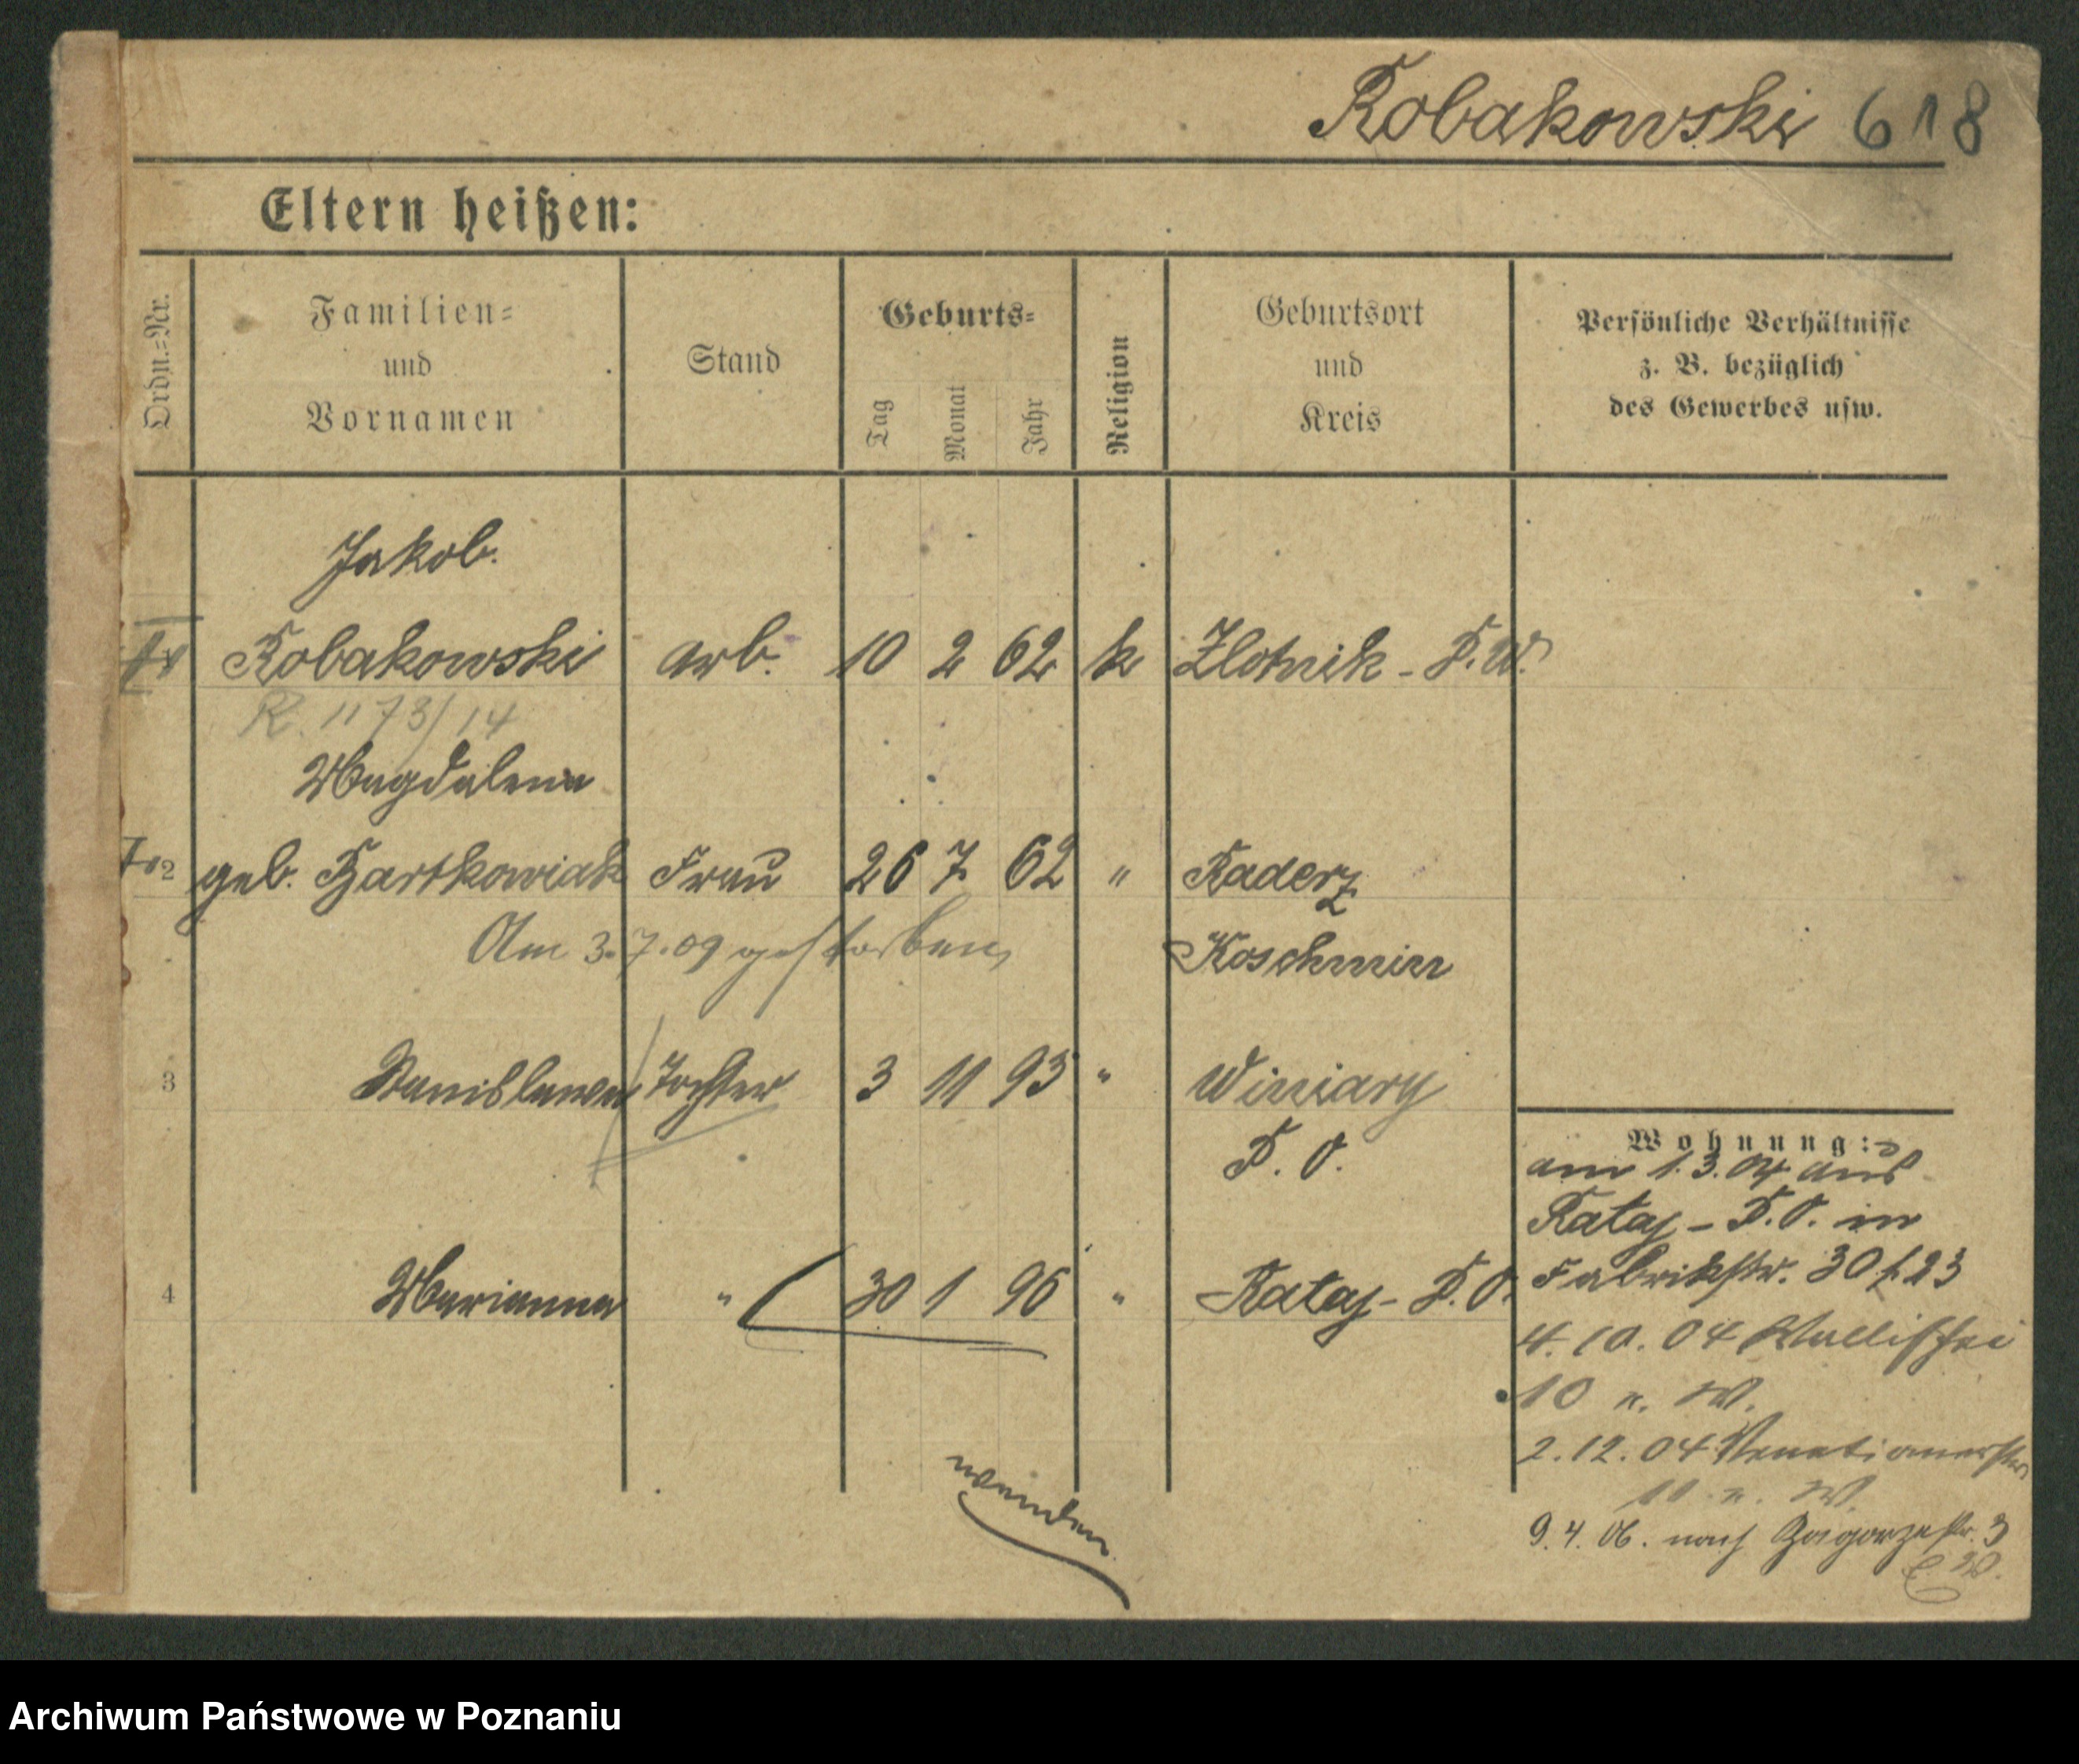 Robakowski 618
Eltern heißen:
Ordn.=Nr.
Familien=
und
Vornamen
Stand
Geburts=
Tag
Monat
Jahr
Religion
Geburtsort
und
Kreis
Persönliche Verhältnisse
z. B. bezüglich
des Gewerbes usw.
Jakob.
Robakowski arb. 10 2 62 k Zlotnik - P. W.
R. 1173/14
Magdalena
2 geb. Bartkowiak Frau 26 7 62 " Raderz
Am 3.7.09 gestorben
Koschmin
3 Stanislawa Tochter 3 11 93 " Winiary
P. O.
4 Marianna " 30 1 96 " Rataj - P. O.
Wohnung:
am 1.3.04 aus
Rataj - P. O. in
Fabrikstr. 30 b. 23
4. 10. 04 Wallischei
10 n. W.
2. 12. 04 Venetianerstr
n. W.
9. 4. 06. nach Zagorzestr. 3
wenden
Archiwum Państwowe w Poznaniu